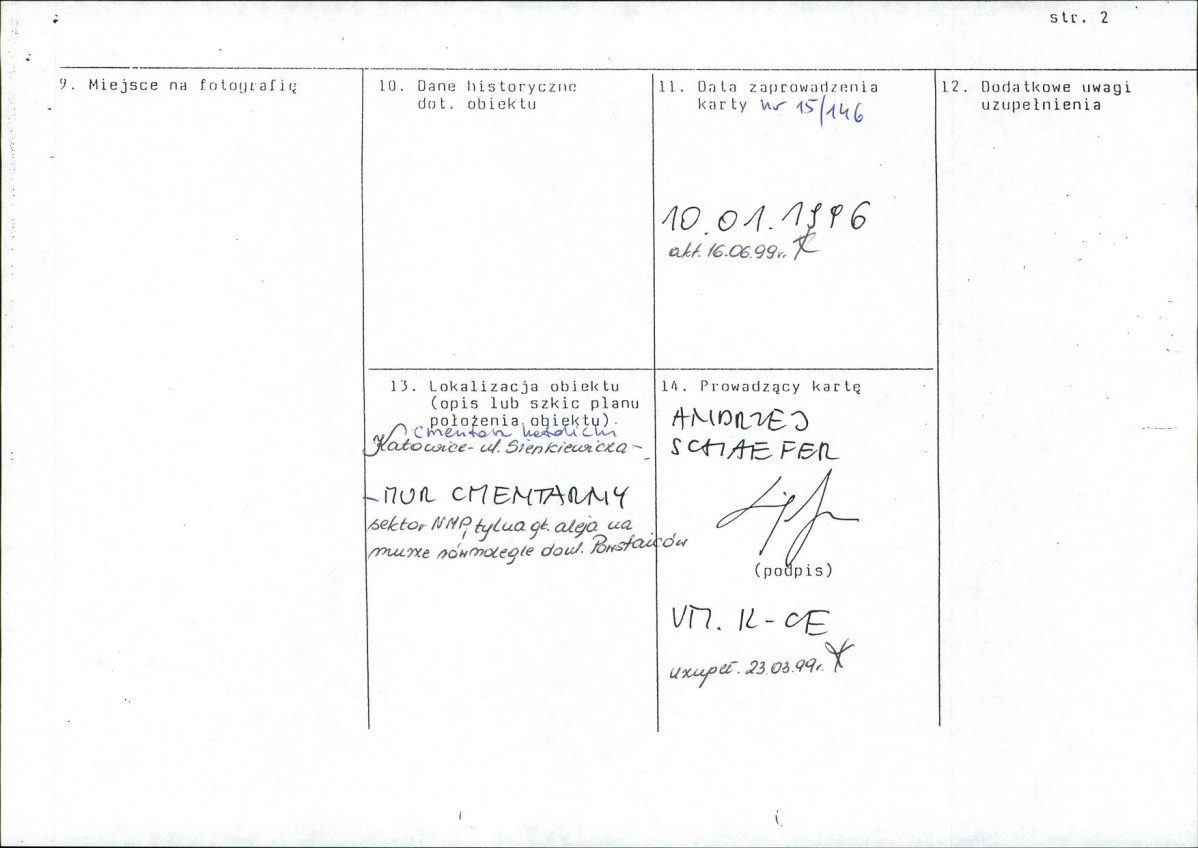 str. 2
9. Miejsce na fotografię
10. Dane historyczne
dot. obiektu
11. Data zaprowadzenia
karty nr 15/146
10.01.1996
akt. 16.06.99r.
12. Dodatkowe uwagi
uzupełnienia
13. Lokalizacja obiektu
(opis lub szkic planu
położenia obiektu).
cmentarz katolicki
Katowice - ul. Sienkiewicza -
- MUR CMENTARNY
sektor NMP, tylna gł. aleja na
murze równolegle do ul. Powstańców
14. Prowadzący kartę
ANDRZEJ
SCHAEFER
(podpis)
UM. K-CE
uzupeł. 23.03.99r.